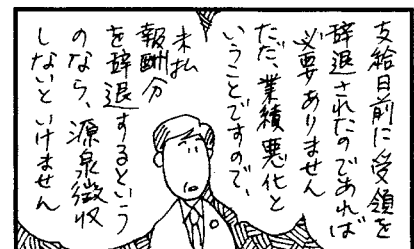 支給日前に受領を
辞退されたのであれば
必要ありません
ただ、業績悪化と
いうことですので、
未払
報酬分
を辞退するという
のなら、源泉徴収
しないといけません